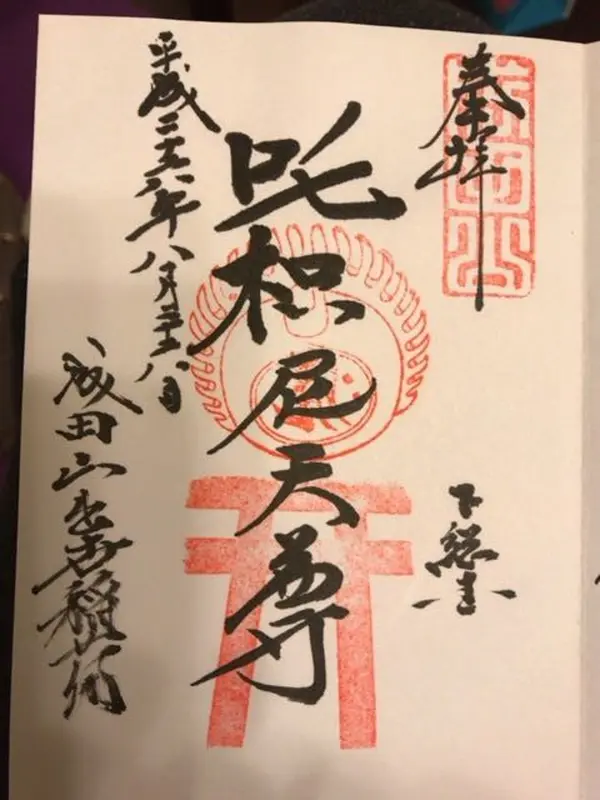 奉拝
成田山
下総国
吒枳尼天尊
平成二十六年八月二十八日
成田山出世稲荷